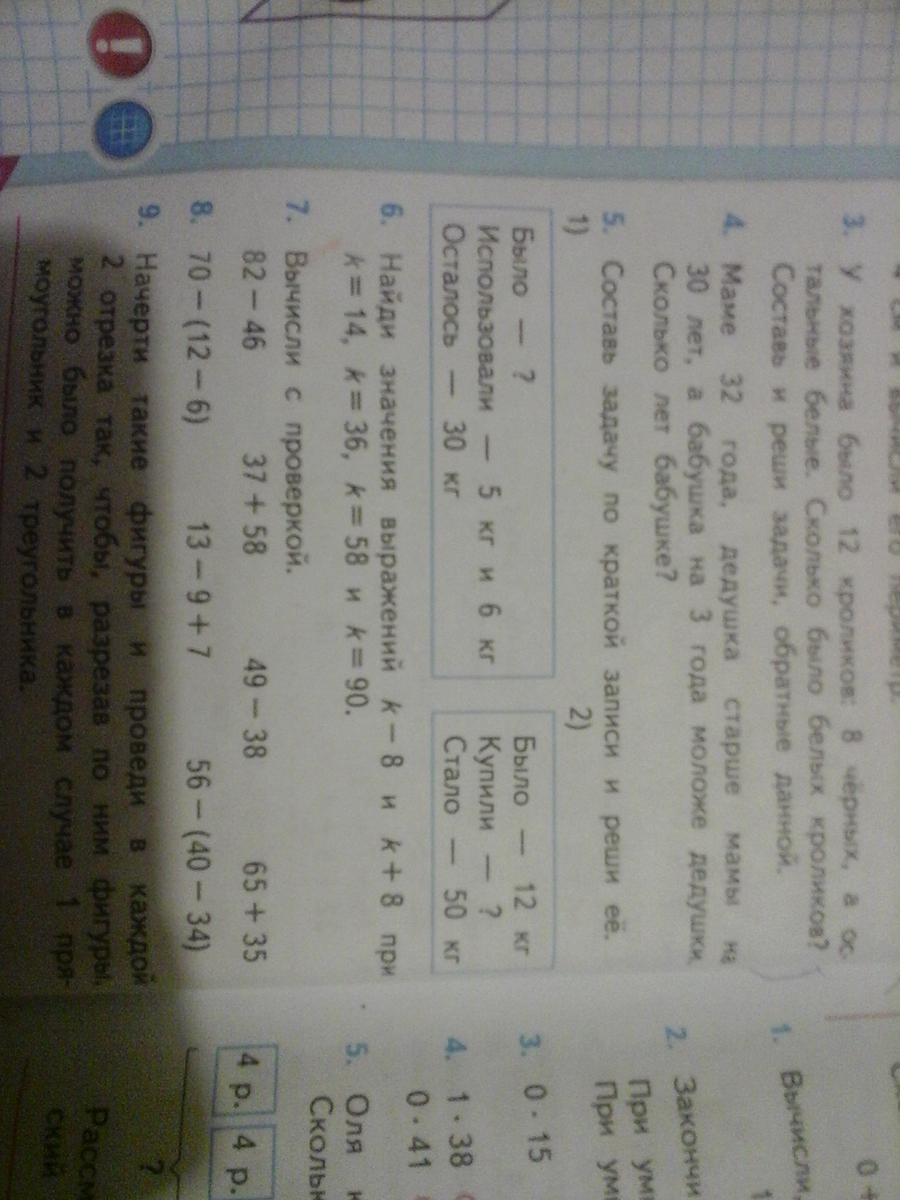 4 см и вычисли его периметр.
3. У хозяина было 12 кроликов: 8 чёрных, а ос-
тальные белые. Сколько было белых кроликов?
Составь и реши задачи, обратные данной.
4. Маме 32 года, дедушка старше мамы на
30 лет, а бабушка на 3 года моложе дедушки.
Сколько лет бабушке?
5. Составь задачу по краткой записи и реши её.
1) 2)
Было — ?
Использовали — 5 кг и 6 кг
Осталось — 30 кг
Было — 12 кг
Купили — ?
Стало — 50 кг
6. Найди значения выражений k − 8 и k + 8 при
k = 14, k = 36, k = 58 и k = 90.
7. Вычисли с проверкой.
82 − 46 37 + 58 49 − 38 65 + 35
8. 70 − (12 − 6) 13 − 9 + 7 56 − (40 − 34)
9. Начерти такие фигуры и проведи в каждой
2 отрезка так, чтобы, разрезав по ним фигуры,
можно было получить в каждом случае 1 пря-
моугольник и 2 треугольника.
1. Вычисли
2. Закончи
При ум
При ум
3. 0 · 15
4. 1 · 38
0 · 41
5. Оля
Сколь
4 р. 4 р.
?
Рассм
ский